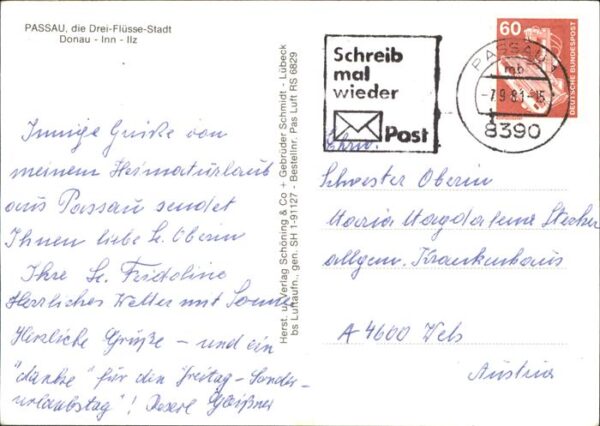 PASSAU, die Drei-Flüsse-Stadt
Donau - Inn - Ilz
Innige Grüße von
meinem Heimaturlaub
aus Passau sendet
Ihnen liebe Sr. Oberin
Ihre Sr. Fridoline
Herrliches Wetter mit Sonne
Herzliche Grüße – und ein
"danke" für den Freitag-Sonder-
urlaubstag"!
Herst. u. Verlag Schöning & Co + Gebrüder Schmidt - Lübeck
bs Luftaufn., gen. SH 1-91127 - Bestellnr. Pas Luft RS 6829
Schreib
mal
wieder
Post
60
DEUTSCHE BUNDESPOST
PASSAU 1
mb
-7.9.81-15
8390
Ehrw.
Schwester Oberin
Maria Magdalena Stecker
allgem. Krankenhaus
A 4600 Wels
Austria